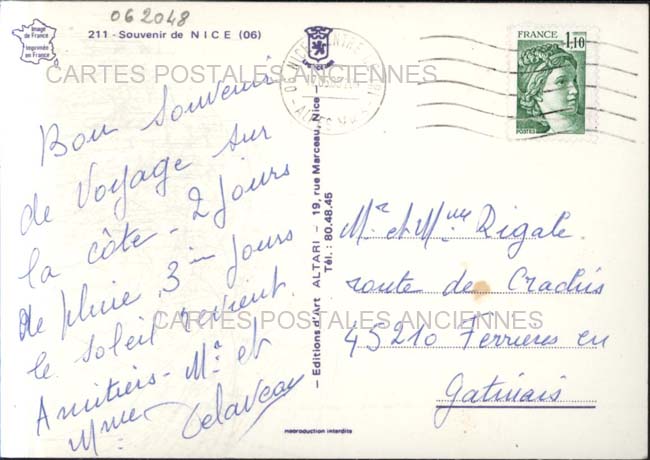 062048
Image
de France
Imprimée
en France
211 - Souvenir de NICE (06)
FRANCE
1,10
POSTES
CARTES POSTALES ANCIENNES
Bon souvenir
de voyage sur
la côte - 2 jours
de pluie, 3 jours
le soleil revient.
Amitiés - Mr et
Mme Delaveau
- Editions d'Art ALTARI - 19, rue Marceau, Nice -
Tél. : 80.48.45
Mr et Mme Rigale
route de
45210 Ferrieres en
Gatinais
CARTES POSTALES ANCIENNES
reproduction interdite